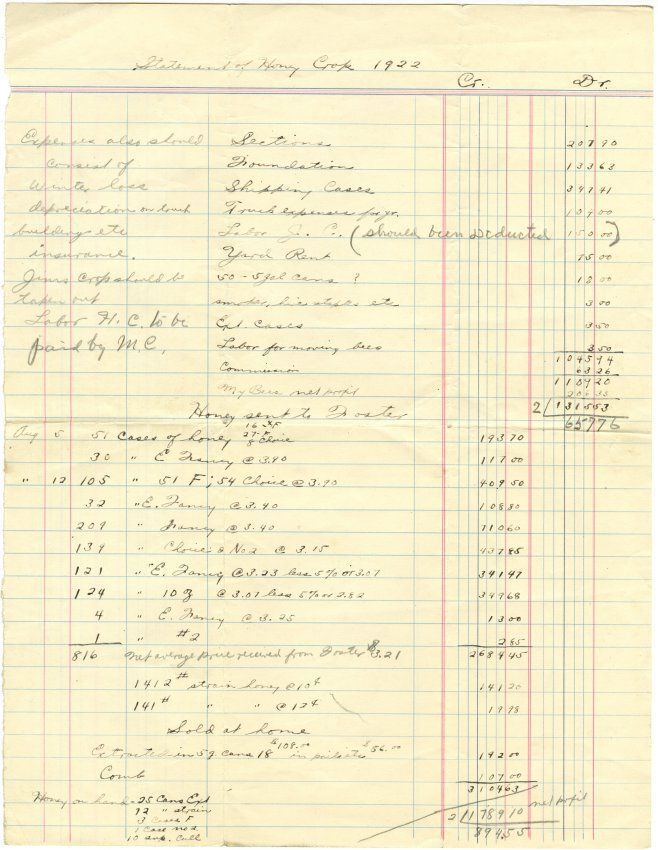 Statement of Honey Crop 1922
Cr. Dr.
Expenses also should Sections 207 90
consist of Foundation 133 63
Winter loss Shipping Cases 347 41
depreciation on truck Truck expenses for yr. 109 00
buildings etc Labor J. C. (should been Deducted 150 00)
insurance. Yard Rent 75 00
Jims Crop should be 50 - 5 gal cans ? 18 00
taken out smoker, hive etc 3 00
Labor H. C. to be Ext. Cases 3 50
paid by M C, Labor for moving bees 3 50
1045 94
Commission 63 26
1109 20
My Bees net profit
Honey sent to Foster 2 1315 53
657 76
Aug 5 51 cases of honey 8 Choice 193 70
30 " E Fancy @ 3.90 117 00
" 12 105 " 51 F; 54 Choice @ 3.90 409 50
32 " E. Fancy @ 3.40 108 80
209 " Fancy @ 3.40 710 60
139 " Choice & No 2 @ 3.15 437 85
121 " E. Fancy @ 3.23 less 5% or 3.07 341 47
124 " 10 @ 3.07 less 5% or 2.82 349 68
4 " E. Fancy @ 3.25 13 00
1 " #2 2 85
816 Net average price received from Foster $3.21 2684 45
1412 # strain honey @ 10¢ 141 20
141 # " " @ 12¢ 19 98
Sold at home
Extracted in 5 g. cans 18 $108.00 in $56.00 192 00
Comb 107 00
3104 63
Honey on hand = 25 Cans Ext
12 " strain
3 Cases F
1 Case no 2
10 sup. Cull
2 1789 10 net profit
894 55